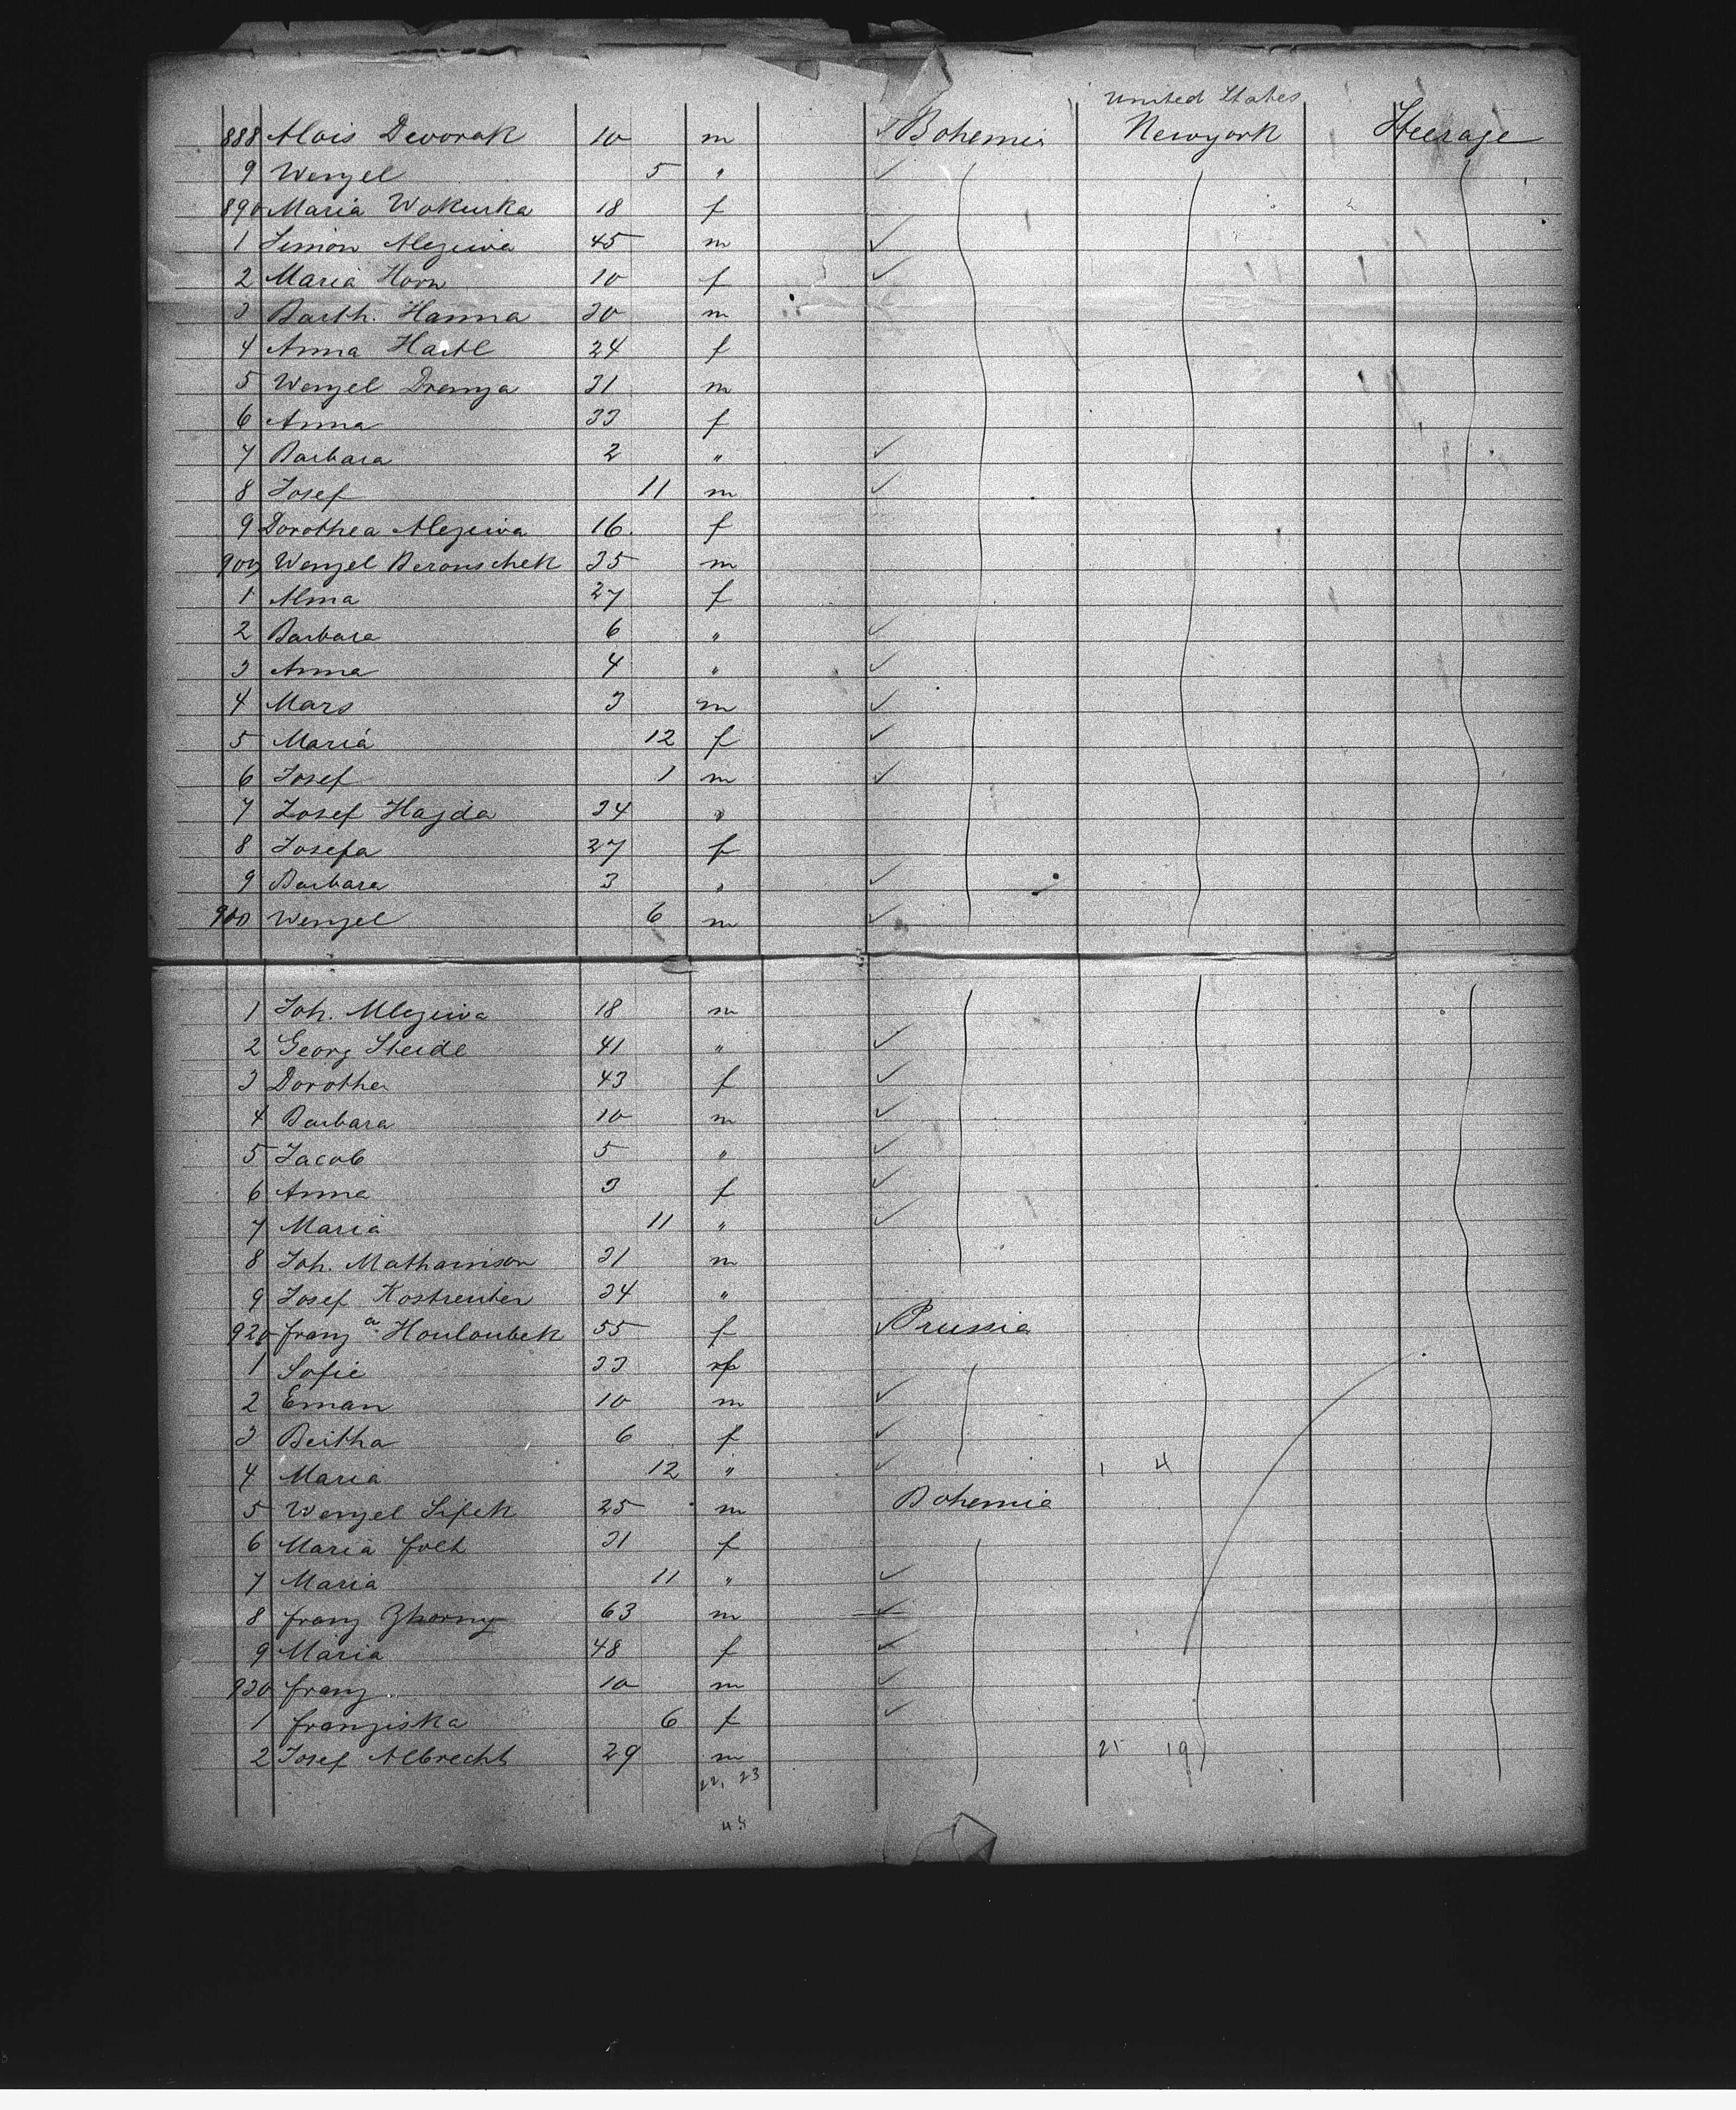 United States
888 Alois Dworak 10 m Bohemia Newyork Steerage
9 Wenzel 5 "
890 Maria Wokurka 18 f
1 Simon Mleziva 45 m
2 Maria Horn 10 f
3 Barth. Hanna 30 m
4 Anna Hartl 24 f
5 Wenzel 31 m
6 Anna 33 f
7 Barbara 2 "
8 Josef 11 m
9 Dorothea Mleziva 16 f
900 Wenzel Beronschek 35 m
1 Alma 27 f
2 Barbara 6 "
3 Anna 4 "
4 Mars 3 m
5 Maria 12 f
6 Josef 1 m
7 Josef Hajda 34 "
8 Josefa 27 f
9 Barbara 3 "
910 Wenzel 6 m
1 Joh. Mleziva 18 m
2 Georg Steidl 41 "
3 Dorothea 43 f
4 Barbara 10 m
5 Jacob 5 "
6 Anna 3 f
7 Maria 11 "
8 Joh. 31 m
9 Josef Kostreuter 34 "
920 Franz a Houloubek 55 f Prussia
1 Sofie 33 f
2 Eman 10 m
3 Bertha 6 f
4 Maria 12 " 1 4
5 Wenzel Sifek 25 m Bohemia
6 Maria 31 f
7 Maria 11 "
8 Franz Zhorny 63 m
9 Maria 48 f
930 Franz 10 m
1 Franziska 6 f
2 Josef Albrecht 29 m 21 19
22, 23
45